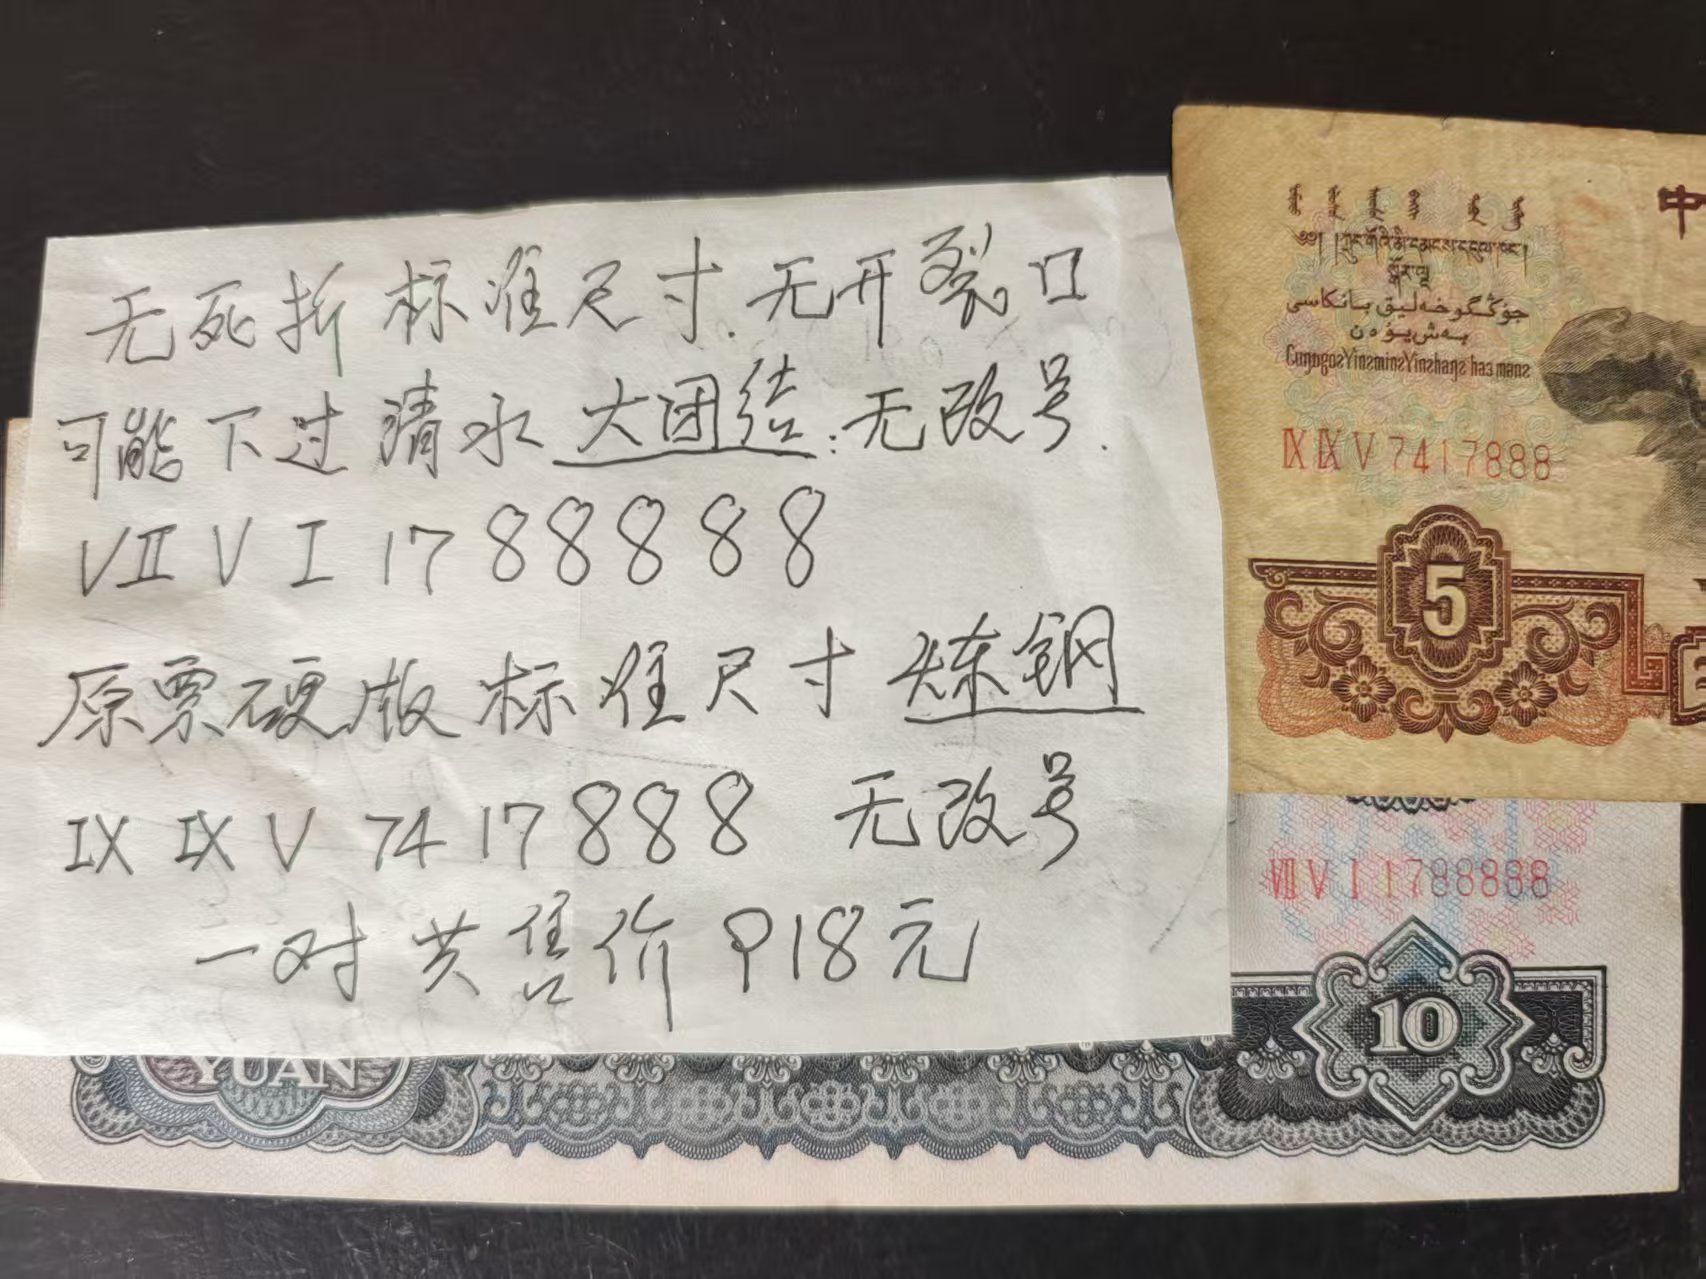 无死折标准尺寸.无开裂口
可能下过清水大团结:无改号.
VII V I 1788888
原票硬版标准尺寸炼钢
IX IX V 7417888 无改号
一对共售价918元
中
جۇڭگو خەلىق بانكاسى
بەش يۇەن
IX IX V 7417888
5
VII V I 1788888
10
YUAN